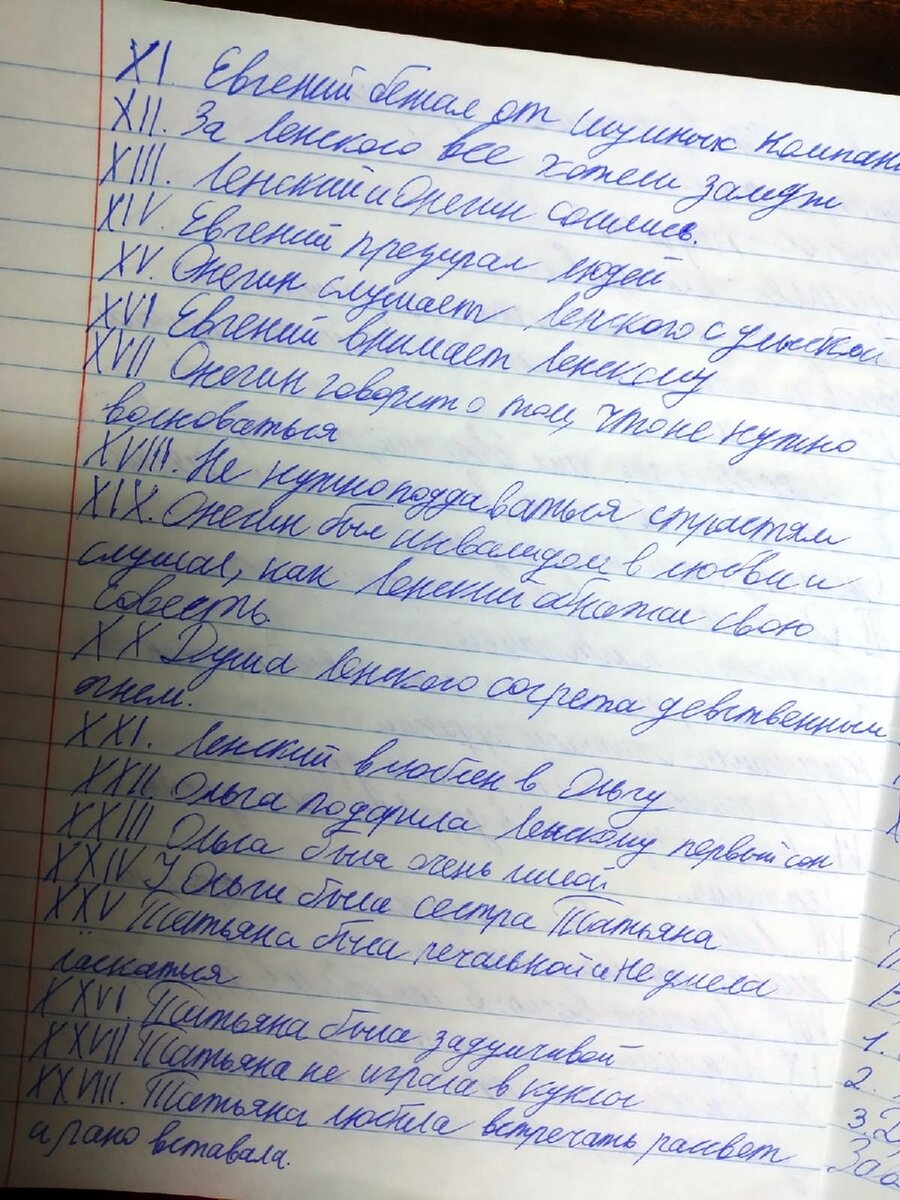 XI. Евгений бежал от шумных компан
XII. За Ленского все хотели замуж
XIII. Ленский и Онегин сошлись.
XIV. Евгений презирал людей
XV. Онегин слушает Ленского с улыбкой
XVI Евгений внимает Ленскому
XVII Онегин говорит о том, что не нужно
волноваться
XVIII. Не нужно поддаваться страстям
XIX. Онегин был инвалидом в любви и
слушал, как Ленский обнажал свою
совесть.
XX Душа Ленского согрета девственным
огнем.
XXI. Ленский влюблен в Ольгу
XXII Ольга подарила Ленскому первый сон
XXIII Ольга была очень милой
XXIV У Ольги была сестра Татьяна
XXV Татьяна была печальной и не умела
ласкаться
XXVI Татьяна была задумчивой
XXVII Татьяна не играла в куклы
XXVIII. Татьяна любила встречать рассвет
и рано вставала.
1.
2.
3.